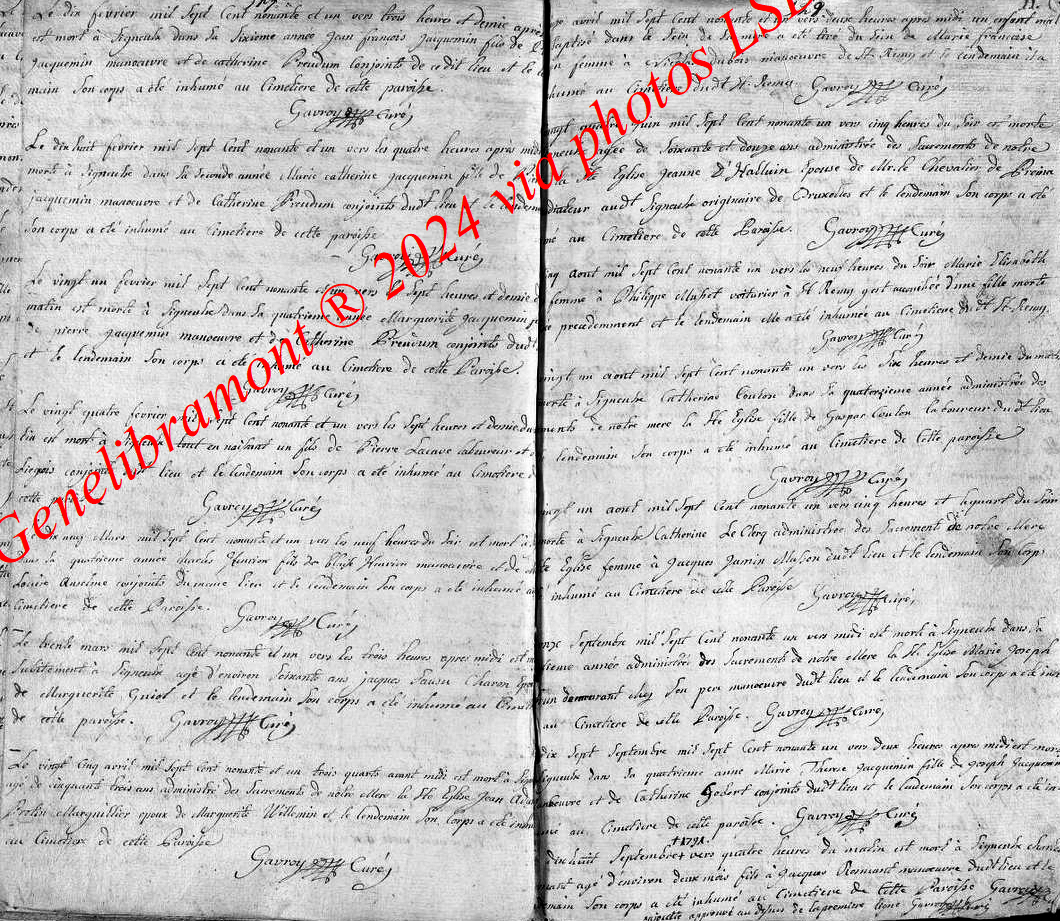 Le dix fevrier mil Sept Cent nonante et un vers trois heures et demie apres
est mort à Signeulx dans sa Sixieme année Jean francois Jacquemin fils de
Jacquemin manoeuvre et de catherine Preudum Conjoints de cedit lieu et le
main Son corps a eté inhumé au Cimetiere de cette paroisse
Gavroy Curé
Le dixhuit fevrier mil Sept Cent nonante et un vers les quatre heures apres midi
morte à Signeulx dans Sa Seconde année Marie catherine Jacquemin fille de
Jacquemin manoeuvre et de Catherine Preudum conjoints dudt lieu et le lendem
Son corps a eté inhumé au Cimetiere de cette paroisse
Gavroy Curé
Le vingt un fevrier mil Sept Cent nonante et un vers Sept heures et demie d
matin est morte à Signeulx dans Sa quatrieme année Marguerite Jacquemin
de pierre Jacquemin manoeuvre et de Catherine Preudum conjoints dudt
et le lendemain Son corps a eté inhumé au Cimetiere de cette Paroisse
Gavroy Curé
Le vingt quatre fevrier mil Sept Cent nonante et un vers les Sept heures et demie du
tin est mort à Signeulx tout en naissant un fils de Pierre Lacave laboureur et
Liegois conjoints lieu et le lendemain Son corps a eté inhumé au Cimetiere d
cette
Gavroy Curé
dix neuf Mars mil Sept Cent nonante et un vers les neuf heures du Soir est mort à
dans Sa quatrieme année charles Henrion fils de blaise Henrion manoeuvre et de
Louise Anselme conjoints du meme lieu et le lendemain Son corps a eté inhumé au
Cimetiere de cette Paroisse.
Gavroy Curé
Le trente mars mil Sept Cent nonante et un vers les trois heures apres midi est m
Subitement à Signeulx agé d'environ Soixante ans jacques Charon
de Marguerite Guiot et le lendemain Son corps a eté inhumé au Cimeti
de cette paroisse. Gavroy Curé
Le vingt Cinq avril mil Sept Cent nonante et un trois quarts avant midi est mort à Sign
agé de cinquante trois ans administré des Sacrements de nôtre Mere la Ste Eglise Jean Adam
Marguillier epoux de Marguerite Willemin et le lendemain Son Corps a eté inhum
au Cimetiere de cette Paroisse
Gavroy Curé
29
11.
avril mil Sept Cent nonante et un vers deux heures apres midi un enfant mal
baptisé dans le Sein de Sa mere a eté tiré du Sein de Marie francoise
femme à Dubois manoeuvre de St Remy et le lendemain il a
humé au Cimetiere dudt St. Remy. Gavroy Curé
ingt quatre Juin mil Sept Cent nonante un vers cinq heures du Soir est morte
Signeulx agée de Soixante et douze ans administrée des Sacrements de notre
Ste Eglise Jeanne D'Halluin Epouse de Mr. le Chevalier de
audt Signeulx originaire de Bruxelles et le lendemain Son corps a eté
mé au Cimetiere de cette Paroisse. Gavroy Curé
inq Aout mil Sept Cent nonante un vers les neuf heures du Soir Marie Elisabeth
femme à Philippe voiturié à St Remy S'est accouchée d'une fille morte
precedemment et le lendemain elle a eté inhumée au Cimetiere dudt St. Remy.
Gavroy Curé
vingt un aout mil Sept Cent nonante un vers les Six heures et demie du mati
morte à Signeulx Catherine Coulon dans Sa quatorzieme année administrée des
ments de notre mere la Ste Eglise fille de Gaspar Coulon laboureur dudt lieu
lendemain Son corps a eté inhumé au Cimetiere de Cette paroisse
Gavroy Curé
ingt un aout mil Sept Cent nonante un vers cinq heures et aquart du Soir
morte à Signeulx Catherine Le Clerq administrée des Sacrements de notre Mere
Eglise femme à Jacques Jamin Masson dudt lieu et le lendemain Son corps
inhumé au Cimetiere de cette Paroisse Gavroy Curé
onze Septembre mil Sept Cent nonante un vers midi est morte à Signeulx dans Sa
ieme année administrée des Sacrements de notre Mere la St. Eglise Marie Joseph
demeurant chez Son pere manoeuvre dudt lieu et le lendemain Son corps a eté inh
au Cimetiere de cette Paroisse. Gavroy Curé
dix Sept Septembre mil Sept Cent nonante un vers deux heures apres midi est mor
Signeulx dans Sa quatrieme anne Marie Therese Jacquemin fille de Joseph Jacquemin
manoeuvre et de Catherine Gobert conjoints dudt lieu et le lendemain Son corps a eté in
mé au Cimetiere de cette paroisse. Gavroy Curé
+ 1791.
dixhuit Septembre + vers quatre heures du matin est mort à Signeulx charles
agé d'environ deux mois fils à Jacques manoeuvre dudt lieu et le
emain Son corps a eté inhumé au Cimetiere de Cette Paroisse Gavroy
approuvé au dessus de la premiere ligne Gavroy Curé
Genelibramont ® 2024 via photos LSD